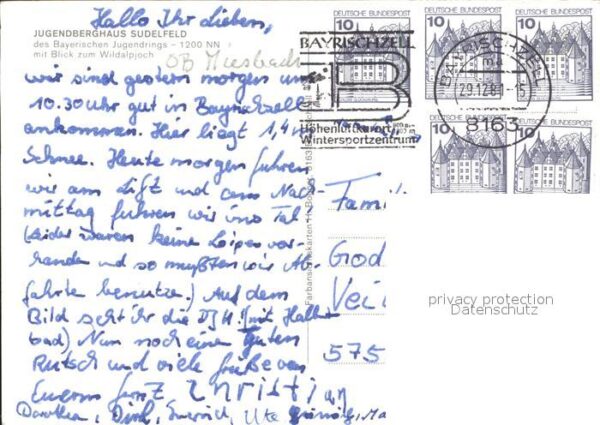 Hallo Ihr Lieben,
JUGENDBERGHAUS SUDELFELD
des Bayerischen Jugendrings - 1200 NN
mit Blick zum Wildalpjoch
OB Miesbach
wir sind gestern morgen um
10.30 Uhr gut in Bayrischzell
ankommen. Hier liegt 1,4 m
Schnee. Heute morgen fuhren
wir am Lift und am Nach-
mittag fuhren wir ins Tal
(Leider waren keine Loipen vor-
handen und so mußten wir Ab-
fahrte benutze.) Auf dem
Bild seht ihr die DJH. (mit Hallen
bad) Nun noch einen guten
Rutsch und viele Grüße von
Eurem
Christian
Dorothea, Dirk, Ute
BAYRISCHZELL
B
Höhenluftkurort
Wintersportzentrum
BAYRISCHZELL
29.12.81-15
8163
10 DEUTSCHE BUNDESPOST
DEUTSCHE BUNDESPOST 10
DEUTSCHE BUNDESPOST 10
DEUTSCHE BUNDESPOST 10
DEUTSCHE BUNDESPOST 10
Famil
God
Vei
575
privacy protection
Datenschutz